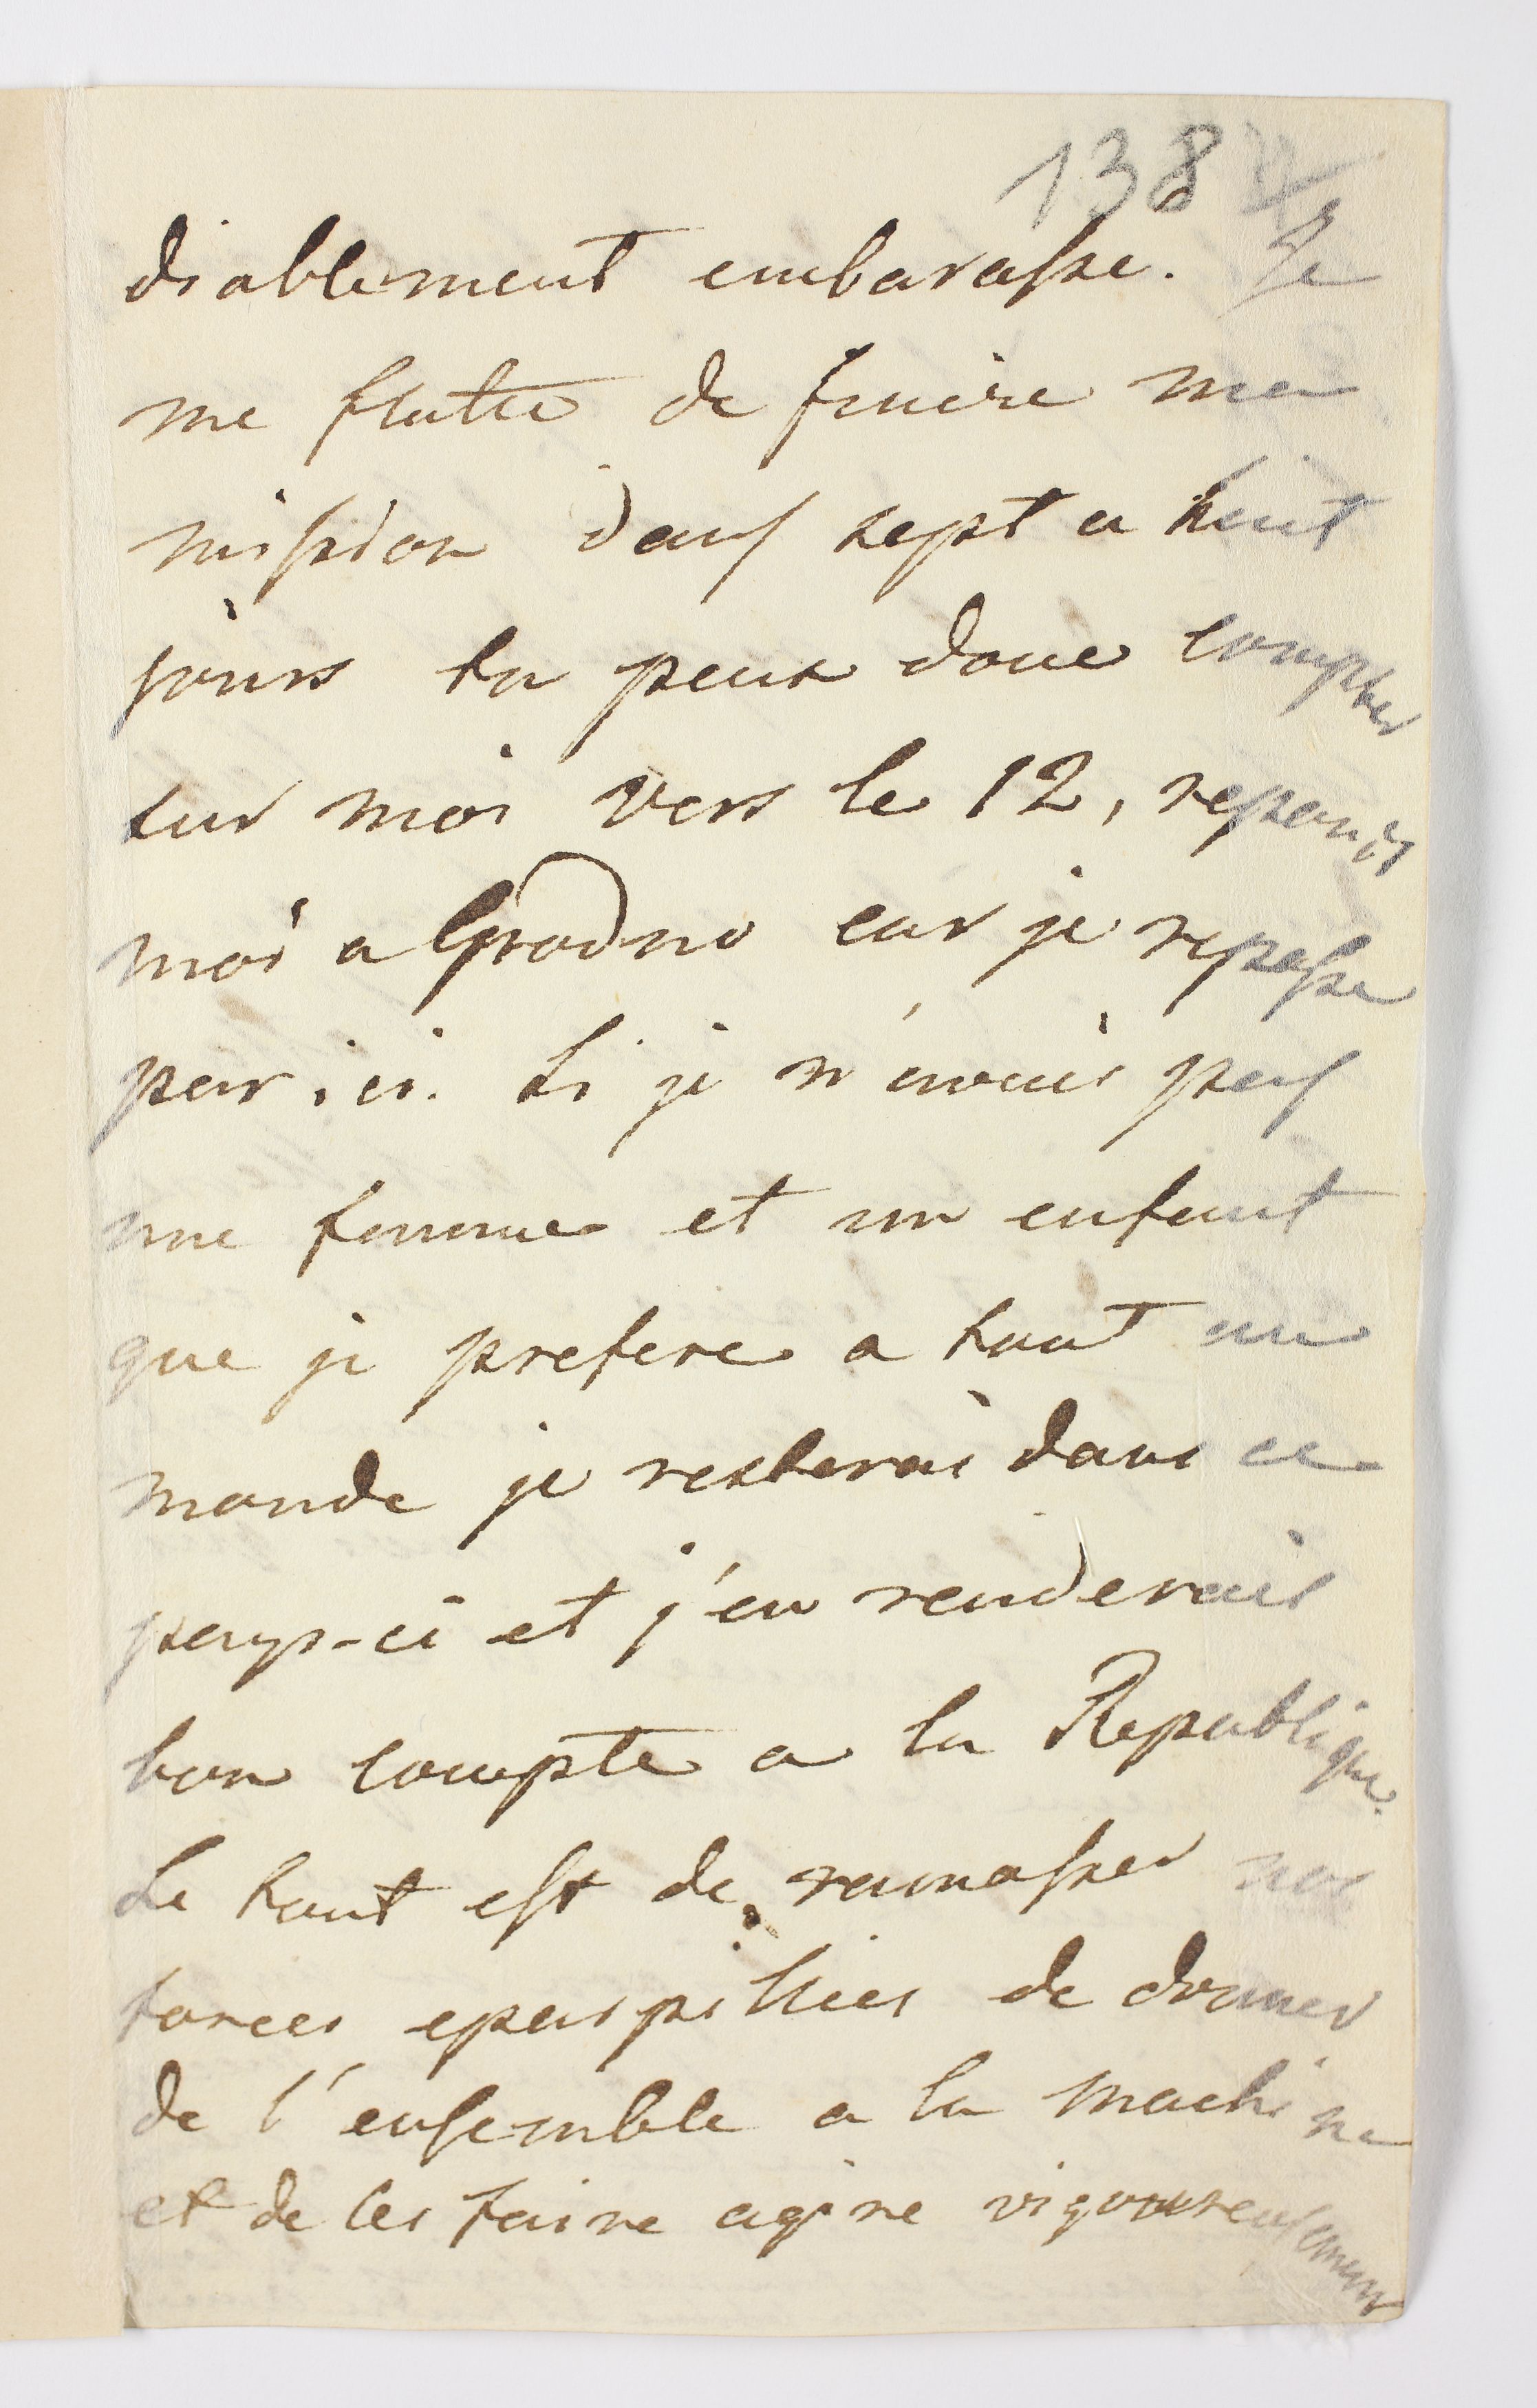 138
diablement embarasse. Je
me flatte de finire ma
mission dans sept a huit
jours tu peux donc compter
sur moi vers le 12, repands
moi a Grodno car je repasse
par ici. Si je n'avais pas
une femme et un enfant
que je prefere a tout au
monde je resterai dans ce
pays-ci et j'en renderais
bon compte a la Republique.
Le tout est de ramasser nos
forces eparpillies de donner
de l'ensemble a la machine
et de les faire agire vigoureusement